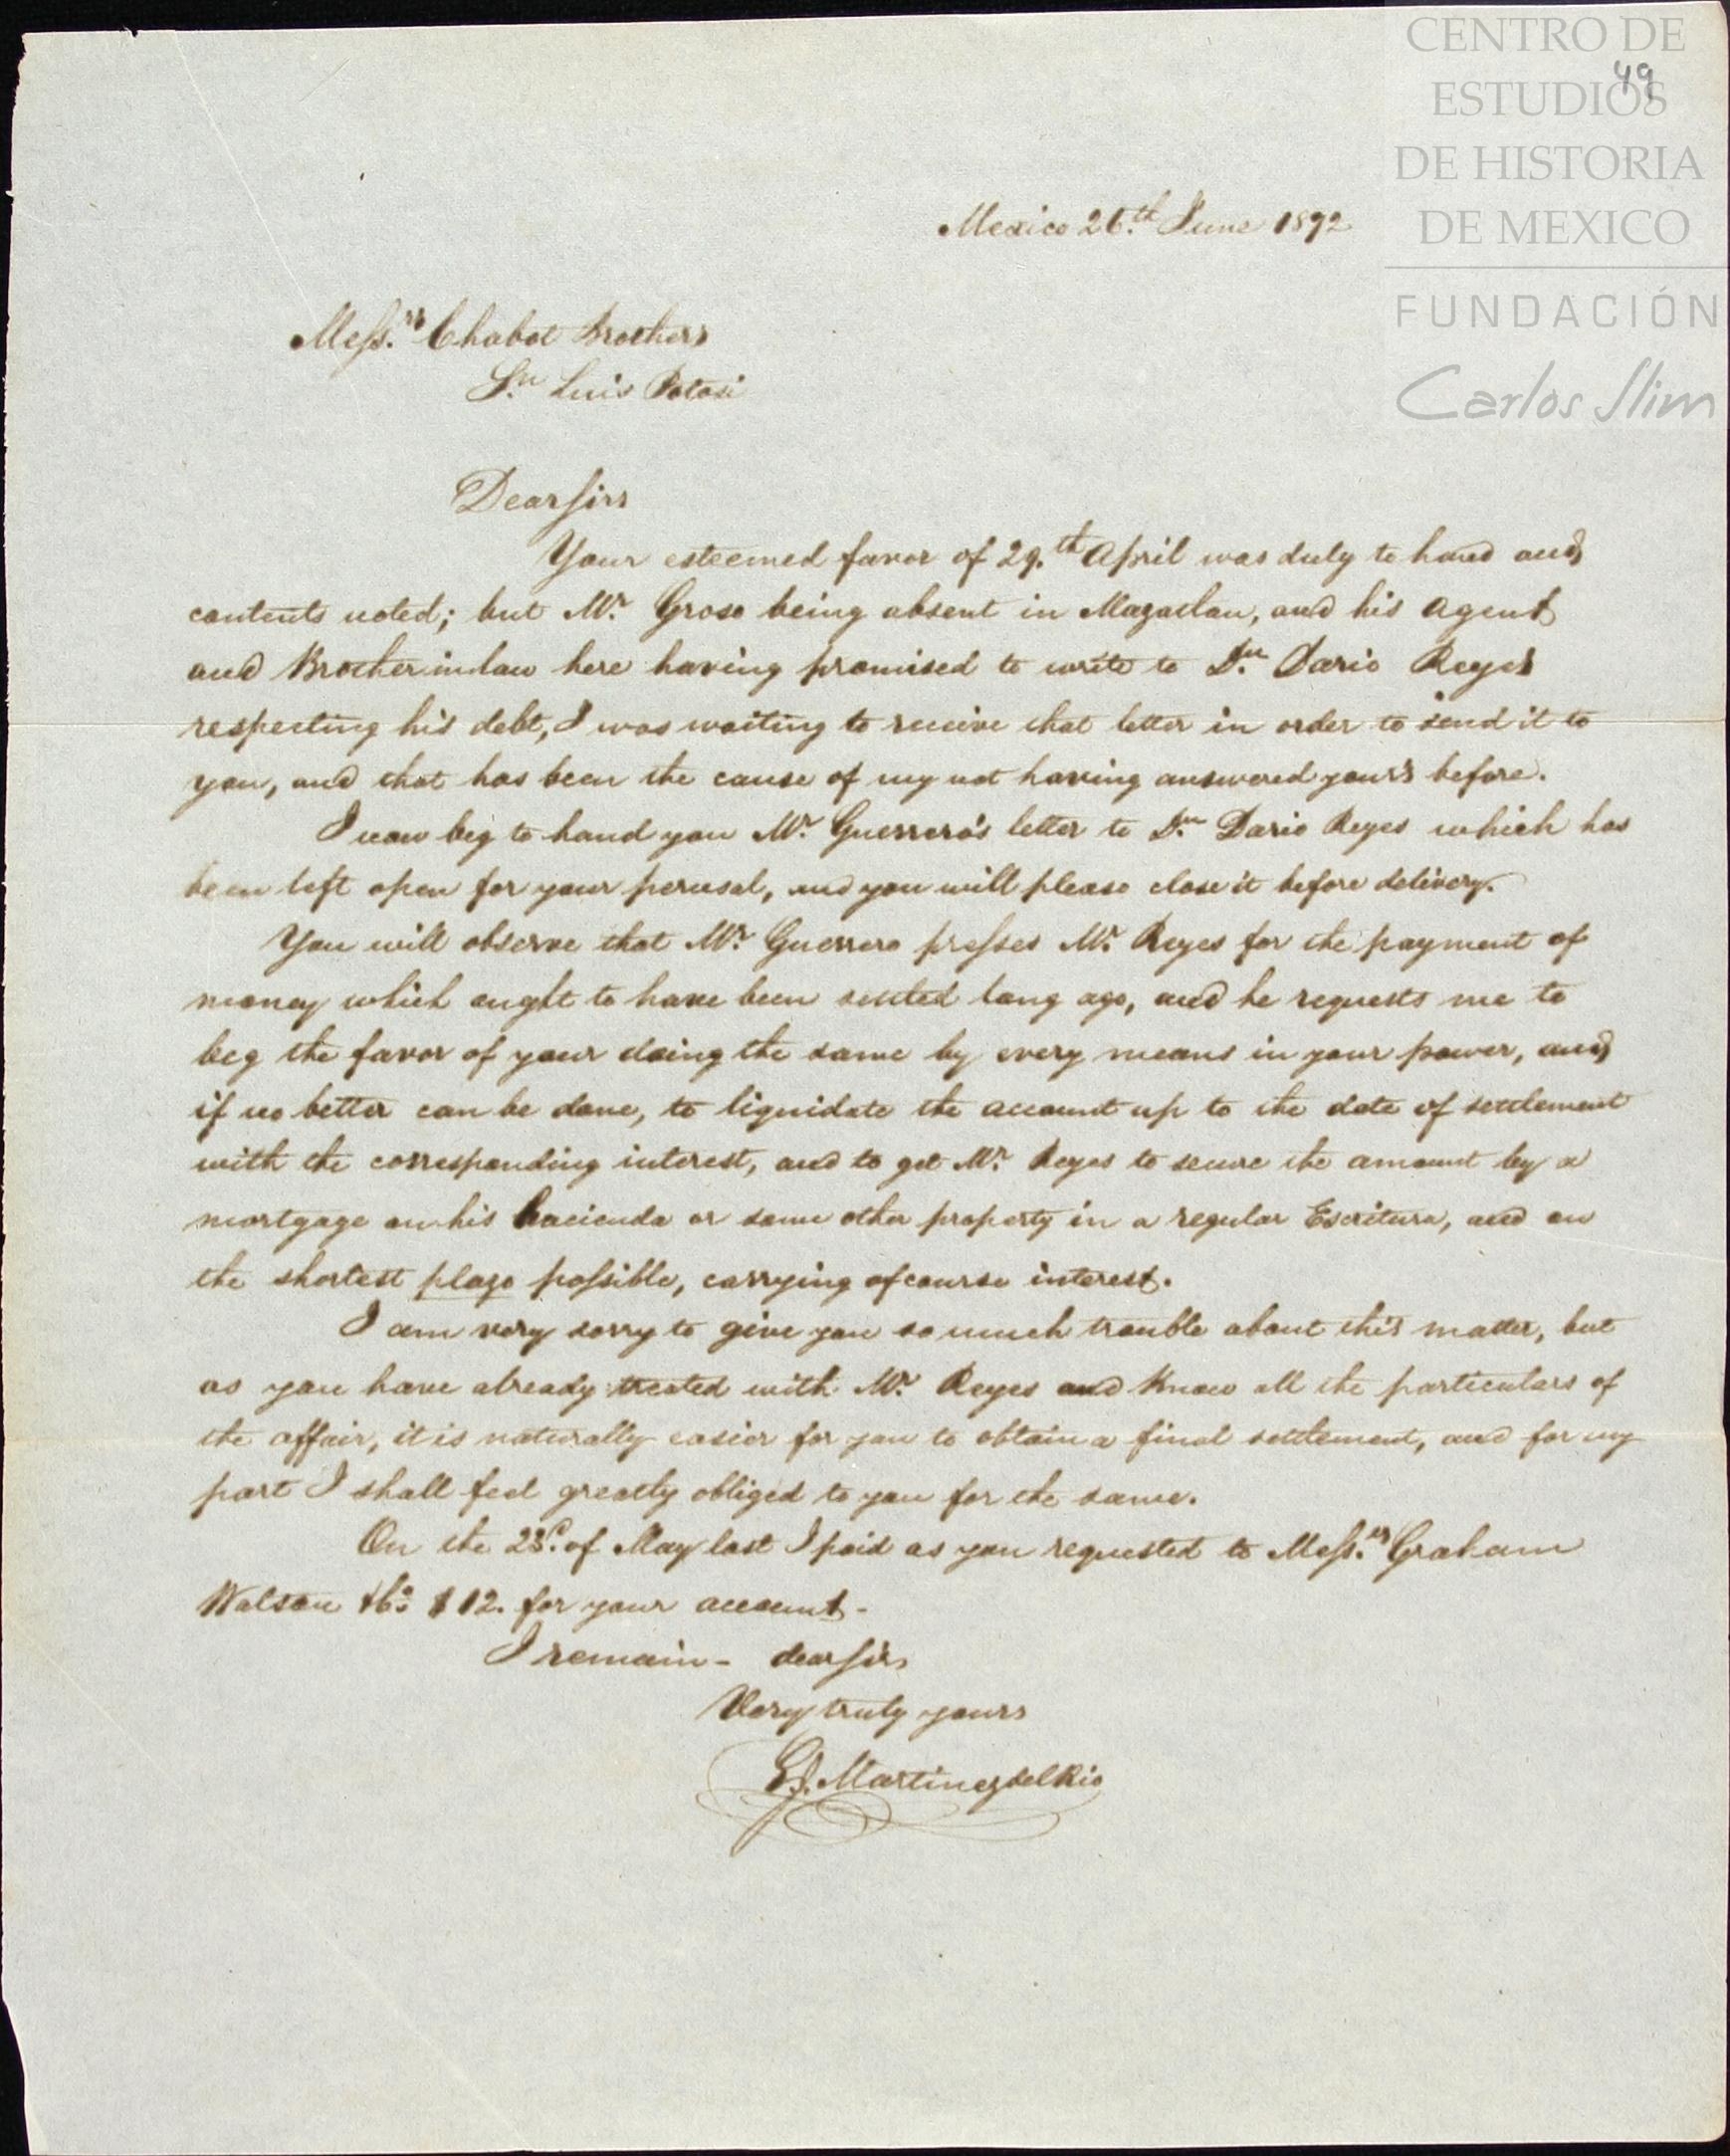 CENTRO DE
ESTUDIOS
DE HISTORIA
DE MEXICO
FUNDACIÓN
Carlos Slim
49
Mexico 26.th June 1872
Mess.rs Chabot Brothers
Sn. Luis Potosi
Dear Sirs
Your esteemed favor of 29.th April was duly to hand and
contents noted; but Mr. Groso being absent in Mazatlan, and his Agent
and Brother in law here having promised to write to Dn. Dario Reyes
respecting his debt, I was waiting to receive that letter in order to send it to
you, and that has been the cause of my not having answered yours before.
I now beg to hand you Mr. Guerrero's letter to Dn. Dario Reyes which has
been left open for your perusal, and you will please close it before delivery.
You will observe that Mr. Guerrero presses Mr. Reyes for the payment of
money which ought to have been settled long ago, and he requests me to
beg the favor of your doing the same by every means in your power, and
if no better can be done, to liquidate the account up to the date of settlement
with the corresponding interest, and to get Mr. Reyes to secure the amount by a
mortgage on his hacienda or some other property in a regular Escritura, and on
the shortest plazo possible, carrying of course interest.
I am very sorry to give you so much trouble about this matter, but
as you have already treated with Mr. Reyes and know all the particulars of
the affair, it is naturally easier for you to obtain a final settlement, and for my
part I shall feel greatly obliged to you for the same.
On the 23.d of May last I paid as you requested to Mess.rs Graham
Watson & Co. $ 12. for your account.
I remain - dear Sirs
Very truly yours
G. Martinez del Rio